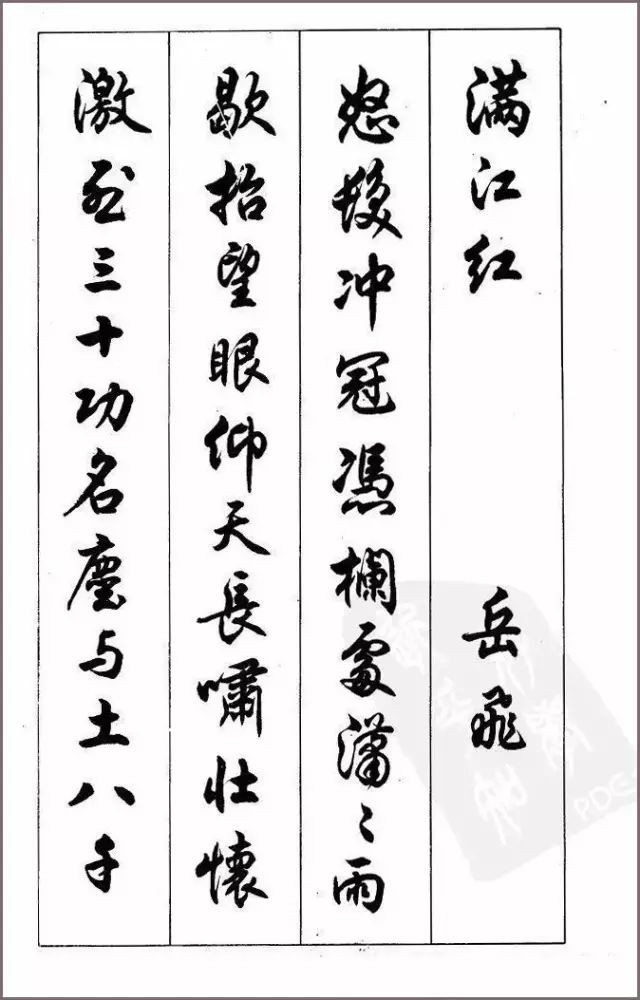 满江红 岳飛
怒髮冲冠憑欄處瀟〻雨
歇抬望眼仰天長嘯壮懷
激烈三十功名塵与土八千
PDG